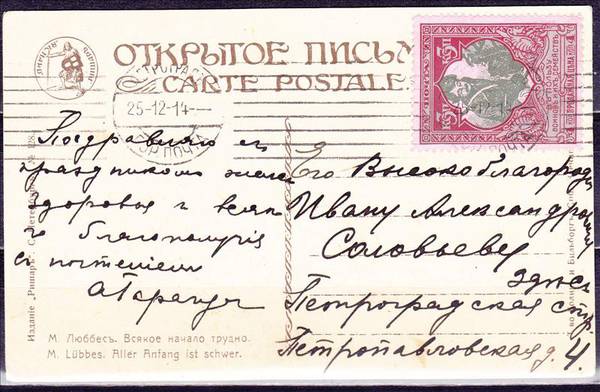 ОТКРЫТОЕ ПИСЬМО
CARTE POSTALE.
25-12-14
ГОР. ПОЧТА
Поздравляю съ
праздникомъ желаю
здоровья и всяка
го благополучія
съ почтеніем
Его Высокоблагородію
Ивану Александровичу
Соловьеву
здесь
Петроградская стр.
Петропавловская д. 4.
М. Люббесъ. Всякое начало трудно.
M. Lübbes. Aller Anfang ist schwer.
Изданіе „Ришаръ“